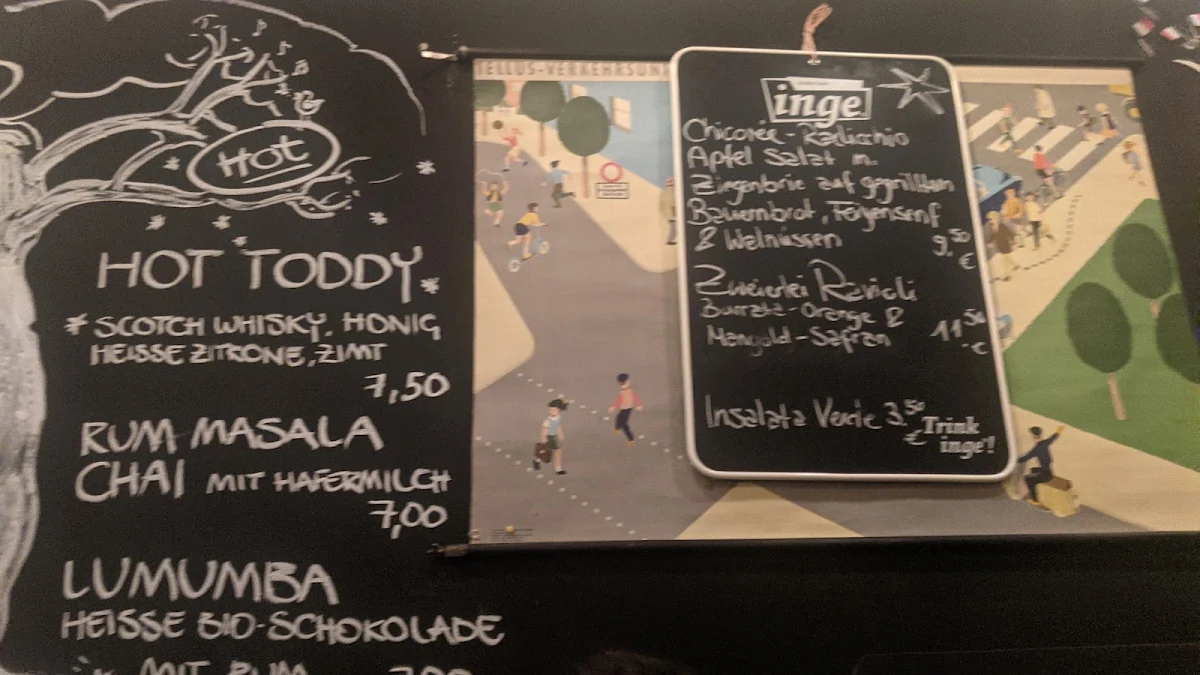 Hot
HOT TODDY
* SCOTCH WHISKY, HONIG
HEISSE ZITRONE, ZIMT
7,50
RUM MASALA
CHAI MIT HAFERMILCH
7,00
LUMUMBA
HEISSE BIO-SCHOKOLADE
MIT RUM 7,00
TELLUS-VERKEHRSUN
inge
Chicorée - Radicchio
Apfel Salat m.
Ziegenbrie auf gegrilltem
Bauernbrot, Feigensenf
& Walnüssen 9,50 €
Zweierlei Ravioli
Burrata-Orange &
Mangold-Safran 11,50 €
Insalata Verde 3,50 €
Trink
inge!